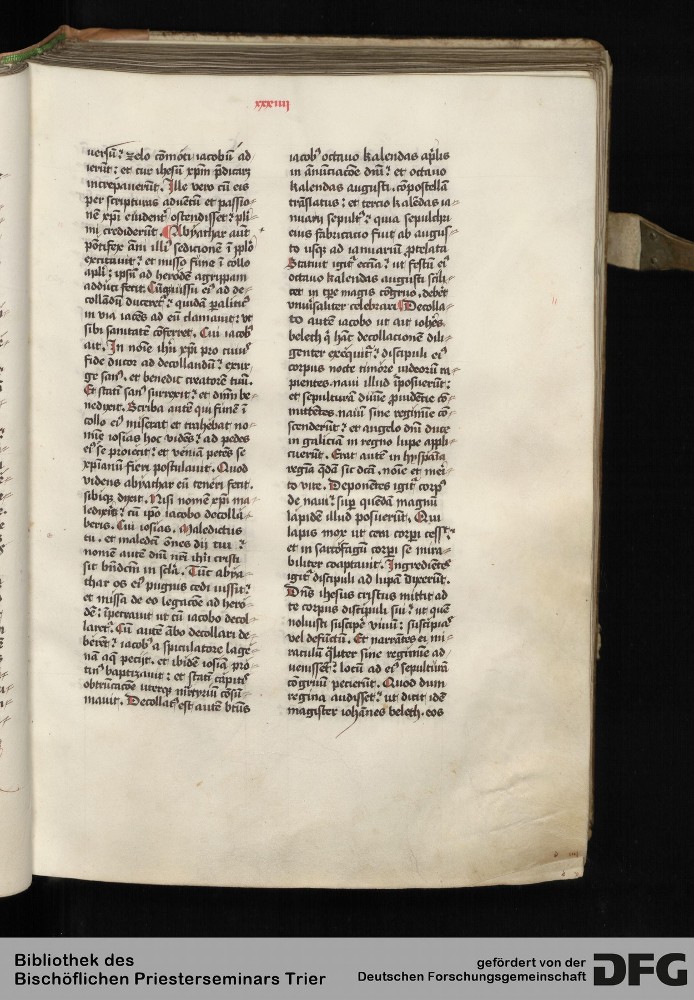 xxxiiij
uersū? zelo cōmoti iacobū ad-
ierūt? et cur ihesum xp̄m p̄dicarꝫ
increpauerūt. Ille vero cū eis
per scripturas aduētū et passio-
nē xp̄i euident᷑ ostendisset? pli-
mi crediderūt. Abyathar aūt
pōtifex āni illi᷒ sedicionē ī pplō
excitauit? et misso fune ī collo
apl̄i? ipsū ad herodē agrippam
adduci fecit. Cūq iussu ei᷒ ad de-
collādū duceret᷑? quidā paliticꝰ
in via iacēs ad eū clamauit? vt
sibi sanitatē cōferret. Cui iacobꝰ
ait. In noīe ihū xp̄i pro cuiꝰ
fide ducor ad decollandū? exur-
ge sanꝰ. et benedic creatorē tuū.
Et statī sanꝰ surrexit? et dn̄m be-
nedixit. Scriba autē qui funē ī
collo ei᷒ miserat et trahebat no-
mīe iosias hoc vidēs? ad pedes
ei᷒ se proiecit? et veniā petēs se
xp̄ianū fieri postulauit. Quod
videns abyathar eū teneri fecit.
sibiqꝫ dixit. Nisi nomē xp̄i ma-
ledixeris? cū ip̄o iacobo decolla-
beris. Cui iosias. Maledictus
tu. et maledcī ōnes dij tui?
nomen autē dn̄i nr̄i ihū cristi
sit bn̄dcm̄ in scl̄a. Tūc abya-
thar os ei᷒ pugnis cedi iussit?
et missa de eo legacōe ad hero-
dē? īpetrauit ut cū iacobo decol-
laret᷑. Cū autē ābo decollari de-
berēt? iacobꝰ a spiculatore lage-
nā aq̄ petijt. et ibidē iosiā pro-
tinꝰ baptizauit? et statī capitꝭ
obtrūcacōe uterqꝫ mr̄tyriū cōsū-
mauit. Decollatꝰ est autē btūs
iacobꝰ octauo kalendas apr̄lis
in ānūciacōe dn̄i? et octauo
kalendas augusti. cōpostellā
trāslatus? et tercio kalēdas ia-
nuarij sepultꝰ? quia sepulchri
eius fabricatio fuit ab augus-
to usqꝫ ad ianuariū ꝓtelata
Statuit igit᷑ eccīa? ut festū ei᷒
octauo kalendas augusti scili-
cet in tp̄re magis cōgruo. debet
vniūsaliter celebrari. Decolla-
to autē iacobo ut ait iohēs
beleth q̄ hāc decollacionē dili-
genter exequit᷑? discipuli ei᷒
corpus nocte timore iudeorū ra-
pientes naui illud īposuerūt?
et sepulturā diuīe ꝓuidētie cō-
mittētes nauī sine regimīe cō-
scenderūt? et angelo dn̄i duce
in galiciā in regno lupe appli-
cuerūt. Erat autē in hyspaīa
regīa q̄dā sic dcā. noīe et meri-
to vite. Deponētes igit᷑ corpꝰ
de naui? sup̄ quēdā magnū
lapidē illud posuerūt. Qui
lapis mox ut cera corpi cessit
et in sarcofagū corpi se mira-
biliter coaptauit. Ingrediētes
igit᷑ discipuli ad lupā dixerūt.
Dn̄s ihesus cristus mittit ad
te corpus discipuli sui? ut quē
noluisti suscipē viuū? suscipias
vel defūctū. Et narrātes ei mi-
raculū qͣliter sine regimīe ad-
venissēt? locū ad ei᷒ sepulturā
cōgruū pecierūt. Quod dum
regina audisset? ut dicit idē
magister iohānes beleth. eos
Bibliothek des
Bischöflichen Priesterseminars Trier
gefördert von der
Deutschen Forschungsgemeinschaft
DFG